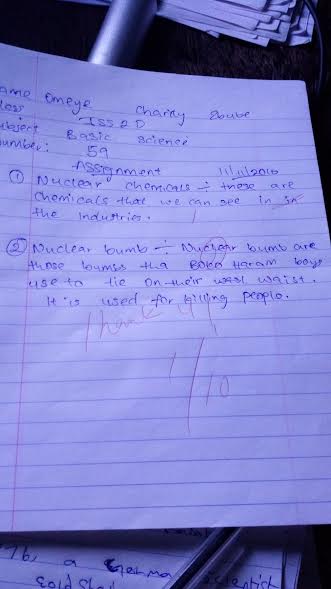 ame Omeye Charity Ebube
lass JSS2D
ubject Basic Science
umber: 59
Assignment 11/11/2016
① Nuclear chemicals ÷ these are
chemicals that we can see in
the industries.
② Nuclear bumb ÷ Nuclear bumb are
those bumbs tha Boko Haram boys
use to tie on their waist.
It is used for killing people.
Thank
1/10
76, a German scientist